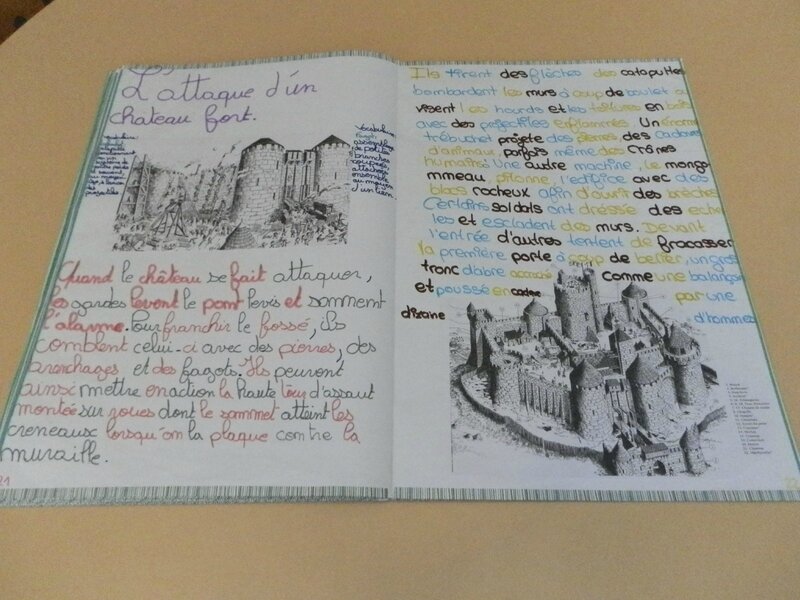 L'attaque d'un
château fort.
Vocabulaire:
Fagots
assemblage
de petites
branches
coupées,
attachées
ensemble
au moyen
d'un lien.
Quand le château se fait attaquer,
les gardes levent le pont levis et somment
l'alarme. Pour franchir le fossé, ils
comblent celui-ci avec des pierres, des
branchages et des fagots. Ils peuvent
ainsi mettre en action la haute tour d'assaut
montée sur roues dont le sommet atteint les
creneaux lorsqu'on la plaque contre la
muraille.
21
Ils tirent des flèches des catapultes
bombardent les murs à coup de boulet ou
visent les hourds et les toitures en bois
avec des projectiles enflammés. Un énorme
trébuchet projete des pierres des cadavres
d'animaux parfois même des crânes
humains. Une autre machine, le mango
mmeau pilonne l'edifice avec des
blocs rocheux afin d'ouvrir des brèches
Certains soldats ont dressé des eche
lles et escladent des murs. Devant
l'entrée d'autres tentent de fracasser
la première porte à coup de belier, un gros
tronc d'abre accroché comme une balançoire
et poussé en cadre par une
dizane d'hommes